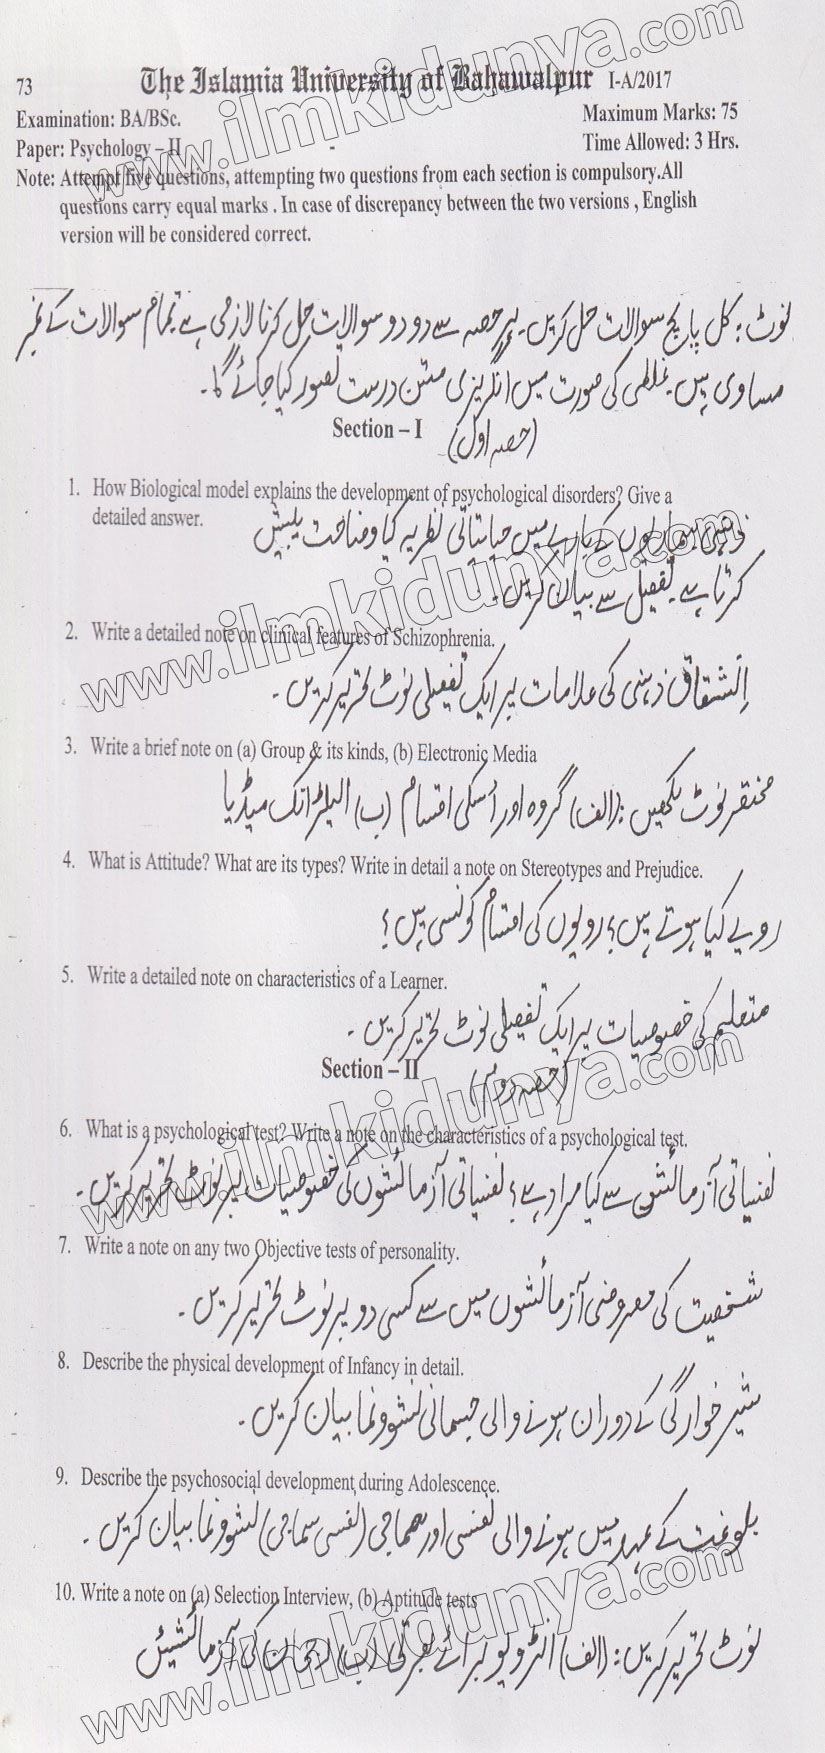 73 The Islamia University of Bahawalpur I-A/2017
Examination: BA/BSc. Maximum Marks: 75
Paper: Psychology – II Time Allowed: 3 Hrs.
Note: Attempt five questions, attempting two questions from each section is compulsory.All
questions carry equal marks . In case of discrepancy between the two versions , English
version will be considered correct.
نوٹ: کل پانچ سوالات حل کریں۔ ہر حصہ سے دو دو سوالات حل کرنا لازمی ہے۔ تمام سوالات کے نمبر
مساوی ہیں۔ غلطی کی صورت میں انگریزی متن درست تصور کیا جائے گا۔
Section – I (حصہ اول)
1. How Biological model explains the development of psychological disorders? Give a
detailed answer. ذہنی بیماریوں کے بارے میں حیاتیاتی نظریہ کیا وضاحت پیش
کرتا ہے۔ تفصیل سے بیان کریں۔
2. Write a detailed note on clinical features of Schizophrenia.
انشقاق ذہنی کی علامات پر ایک تفصیلی نوٹ تحریر کریں۔
3. Write a brief note on (a) Group & its kinds, (b) Electronic Media
مختصر نوٹ لکھیں: (الف) گروہ اور اسکی اقسام (ب) الیکٹرانک میڈیا
4. What is Attitude? What are its types? Write in detail a note on Stereotypes and Prejudice.
رویے کیا ہوتے ہیں؟ رویوں کی اقسام کونسی ہیں؟
5. Write a detailed note on characteristics of a Learner.
متعلم کی خصوصیات پر ایک تفصیلی نوٹ تحریر کریں۔
Section – II (حصہ دوم)
6. What is a psychological test? Write a note on the characteristics of a psychological test.
نفسیاتی آزمائش سے کیا مراد ہے؟ نفسیاتی آزمائشوں کی خصوصیات پر نوٹ تحریر کریں۔
7. Write a note on any two Objective tests of personality.
شخصیت کی معروضی آزمائشوں میں سے کسی دو پر نوٹ تحریر کریں۔
8. Describe the physical development of Infancy in detail.
شیر خوارگی کے دوران ہونے والی جسمانی نشوونما بیان کریں۔
9. Describe the psychosocial development during Adolescence.
بلوغت کے عہد میں ہونے والی نفسی اور سماجی (نفسی سماجی) نشوونما بیان کریں۔
10. Write a note on (a) Selection Interview, (b) Aptitude tests
نوٹ تحریر کریں: (الف) انٹرویو برائے بھرتی (ب) رجحان کی آزمائشیں
www.ilmkidunya.com
www.ilmkidunya.com
www.ilmkidunya.com
www.ilmkidunya.com